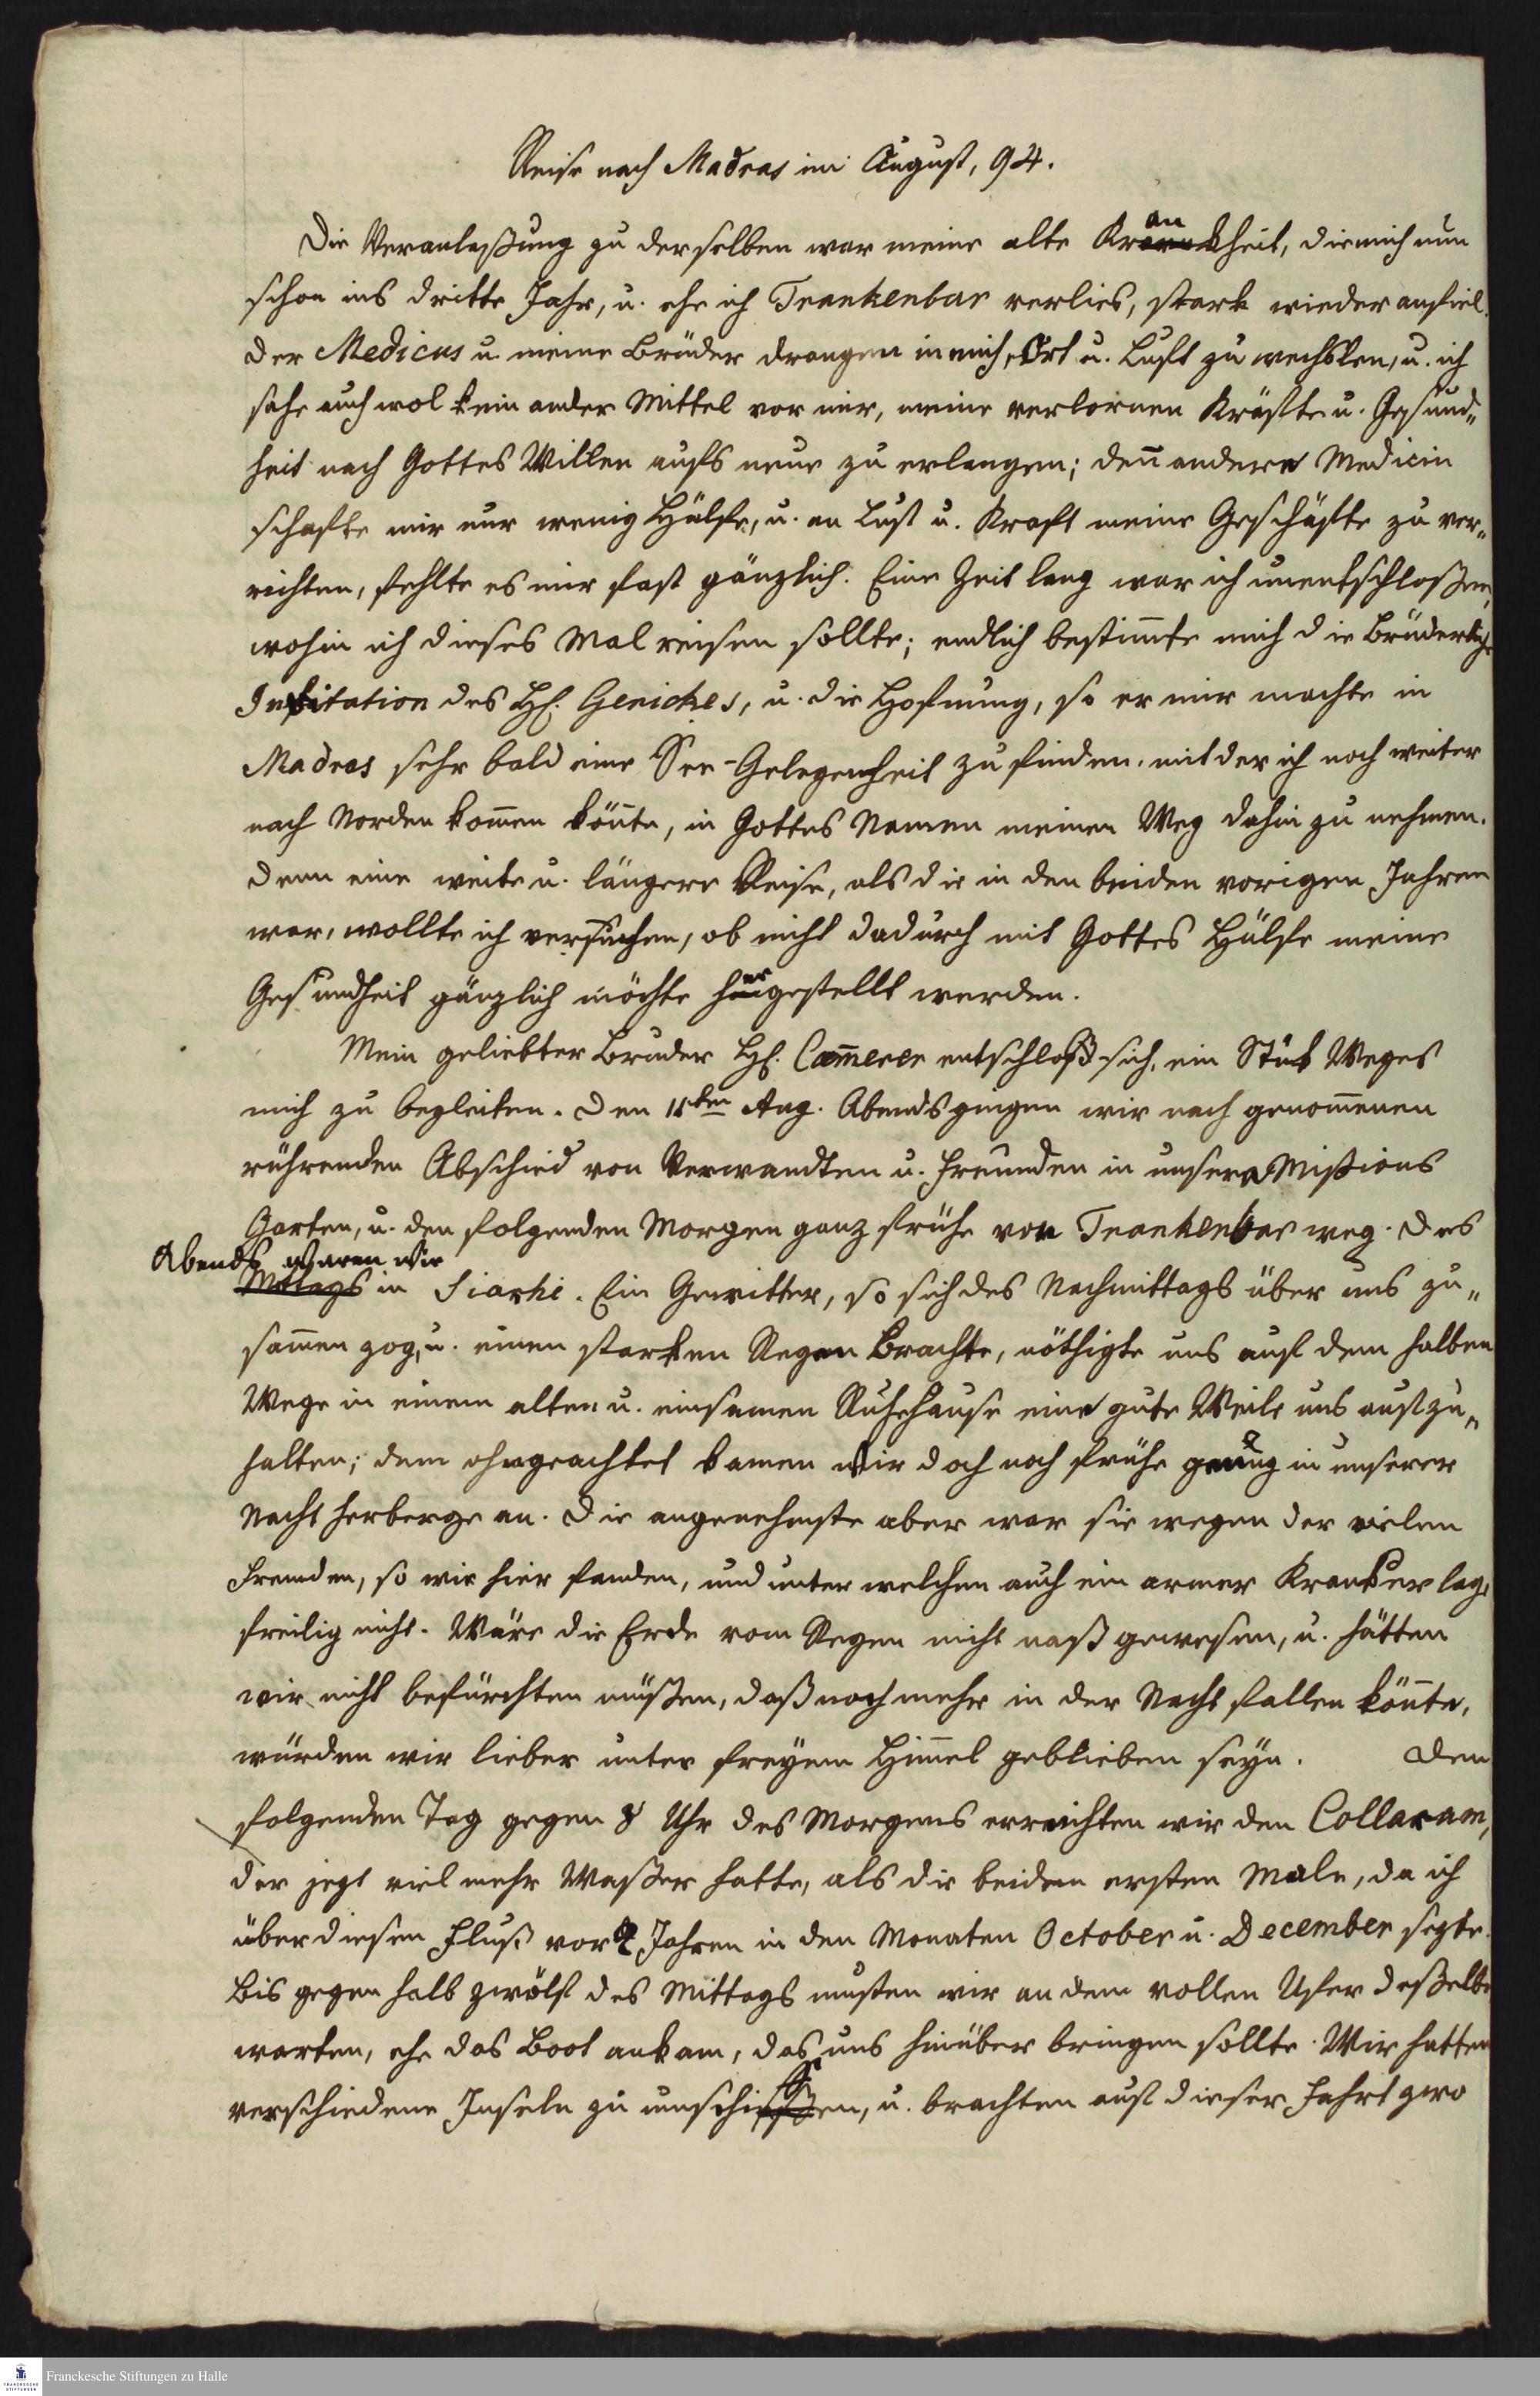 Reise nach Madras im August, 94.
Die Veranlaßung zu derselben war meine alte Krankheit, die mich nun
schon ins dritte Jahr, u. ehe ich Trankenbar verlies, stark wieder anfiel.
Der Medicus u. meine Brüder drangen in mich, Ort u. Luft zu wechslen, u. ich
sahe auch wol kein ander Mittel vor mir, meine verlornen Kräfte u. Gesund„
heit nach Gottes Willen aufs neue zu erlangen; den̄ andere Medicin
schafte mir nur wenig Hülfe, u. an Lust u. Kraft meine Geschäfte zu ver„
richten, fehlte es mir fast gänzlich. Eine Zeit lang war ich unentschloßen,
wohin ich dieses Mal reisen sollte; endlich bestim̄te mich die Brüderliche
Invitation des H. Gerickes, u. die Hofnung, so er mir machte in
Madras sehr bald eine See-Gelegenheit zu finden, mit der ich noch weiter
nach Norden kom̄en kön̄te, in Gottes Namen meinen Weg dahin zu nehmen.
Denn eine weite u. längere Reise, als die in den beiden vorigen Jahren
war, wollte ich versuchen, ob nicht dadurch mit Gottes Hülfe meine
Gesundheit gänzlich möchte hergestellt werden.
Mein geliebter Bruder H. Cam̄erer entschloß sich, ein Stük Weges
mich zu begleiten. Den 11ten Aug. Abends gingen wir nach genom̄enen
rührenden Abschied von Verwandten u. Freunden in unsern Mißions
Garten, u. den folgenden Morgen ganz frühe von Trankenbar weg. Des
Abends waren wir
Mittags in Siarhi. Ein Gewitter, so sich des Nachmittags über uns zu„
sam̄en zog, u. einen starken Regen brachte, nöthigte uns auf dem halben
Wege in einem alten u. einsamen Ruhehause eine gute Weile uns aufzu„
halten; dem ohngeachtet kamen wir doch noch frühe genug in unserer
Nachtherberge an. Die angenehmste aber war sie wegen der vielen
Fremden, so wir hier fanden, und unter welchen auch ein armer Kranker lag,
freilig nicht. Wäre die Erde vom Regen nicht naß gewesen, u. hätten
wir nicht befürchten müßen, daß noch mehr in der Nacht fallen kön̄te,
würden wir lieber unter freyem Him̄el geblieben seyn. Den
folgenden Tag gegen 8 Uhr des Morgens erreichten wir den Collaram,
der jezt viel mehr Waßer hatte, als die beiden ersten Male, da ich
über diesen Fluß vor 2 Jahren in den Monaten October u. December sezte.
Bis gegen halb zwölf des Mittags musten wir an dem vollen Ufer deßelben
warten, ehe das Boot ankam, das uns hinüber bringen sollte. Wir hatten
verschiedene Inseln zu umschiffen, u. brachten auf dieser Fahrt zwo
Franckesche Stiftungen zu Halle